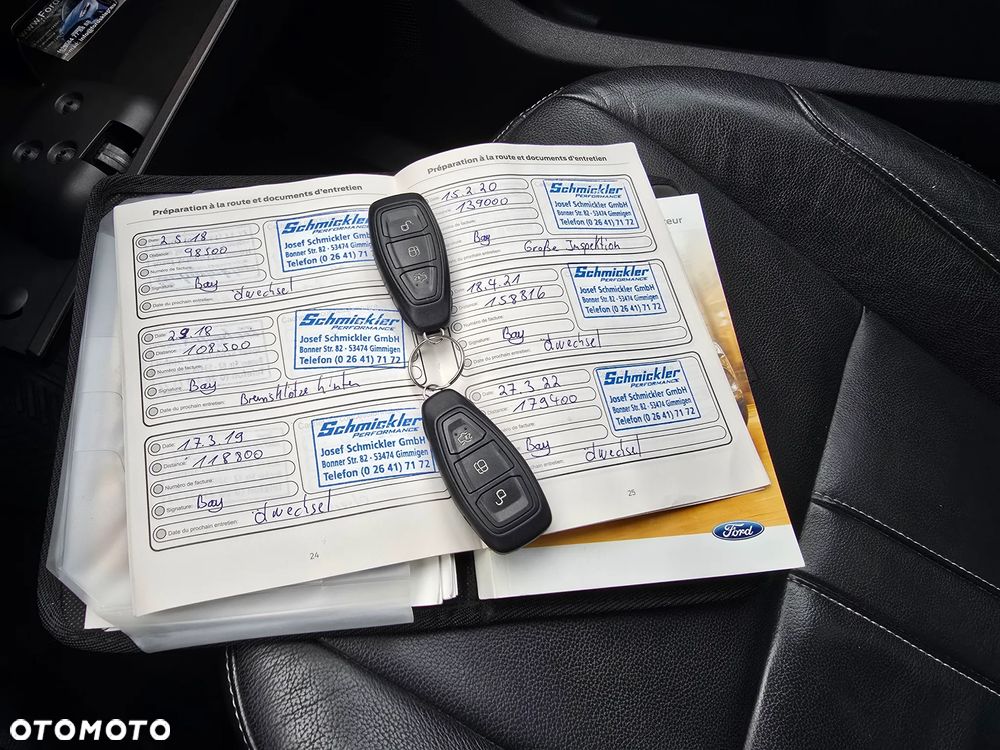 Préparation à la route et documents d'entretien
Date: 2.5.18
Distance: 98500
Numéro de facture:
Signature: Bay
Date du prochain entretien: Ölwechsel
Schmickler
PERFORMANCE
Josef Schmickler GmbH
Bonner Str. 82 - 53474 Gimmigen
Telefon (0 26 41) 71
Date: 2.9.18
Distance: 108.500
Numéro de facture:
Signature: Bay
Date du prochain entretien: Bremsklötze hinten
Schmickler
PERFORMANCE
Josef Schmickler GmbH
Bonner Str. 82 - 53474 Gimmigen
Telefon (0 26 41) 71 72
Date: 17.3.19
Distance: 118800
Numéro de facture:
Signature: Bay
Date du prochain entretien: Ölwechsel
Schmickler
PERFORMANCE
Josef Schmickler GmbH
Bonner Str. 82 - 53474 Gimmigen
Telefon (0 26 41) 71 72
24
Préparation à la route et documents d'entretien
15.2.20
139000
Bay
prochain entretien: Große Inspektion
Schmickler
PERFORMANCE
Josef Schmickler GmbH
Bonner Str. 82 - 53474 Gimmigen
Telefon (0 26 41) 71 72
18.4.21
158816
Numéro de facture:
Signature: Bay
Date du prochain entretien: Ölwechsel
Schmickler
PERFORMANCE
Josef Schmickler GmbH
Bonner Str. 82 - 53474 Gimmigen
Telefon (0 26 41) 71 72
27.3.22
Distance: 179400
de facture:
Bay
prochain entretien: Ölwechsel
Schmickler
PERFORMANCE
Josef Schmickler GmbH
Bonner Str. 82 - 53474 Gimmigen
Telefon (0 26 41) 71 72
25
Ford
OTOMOTO